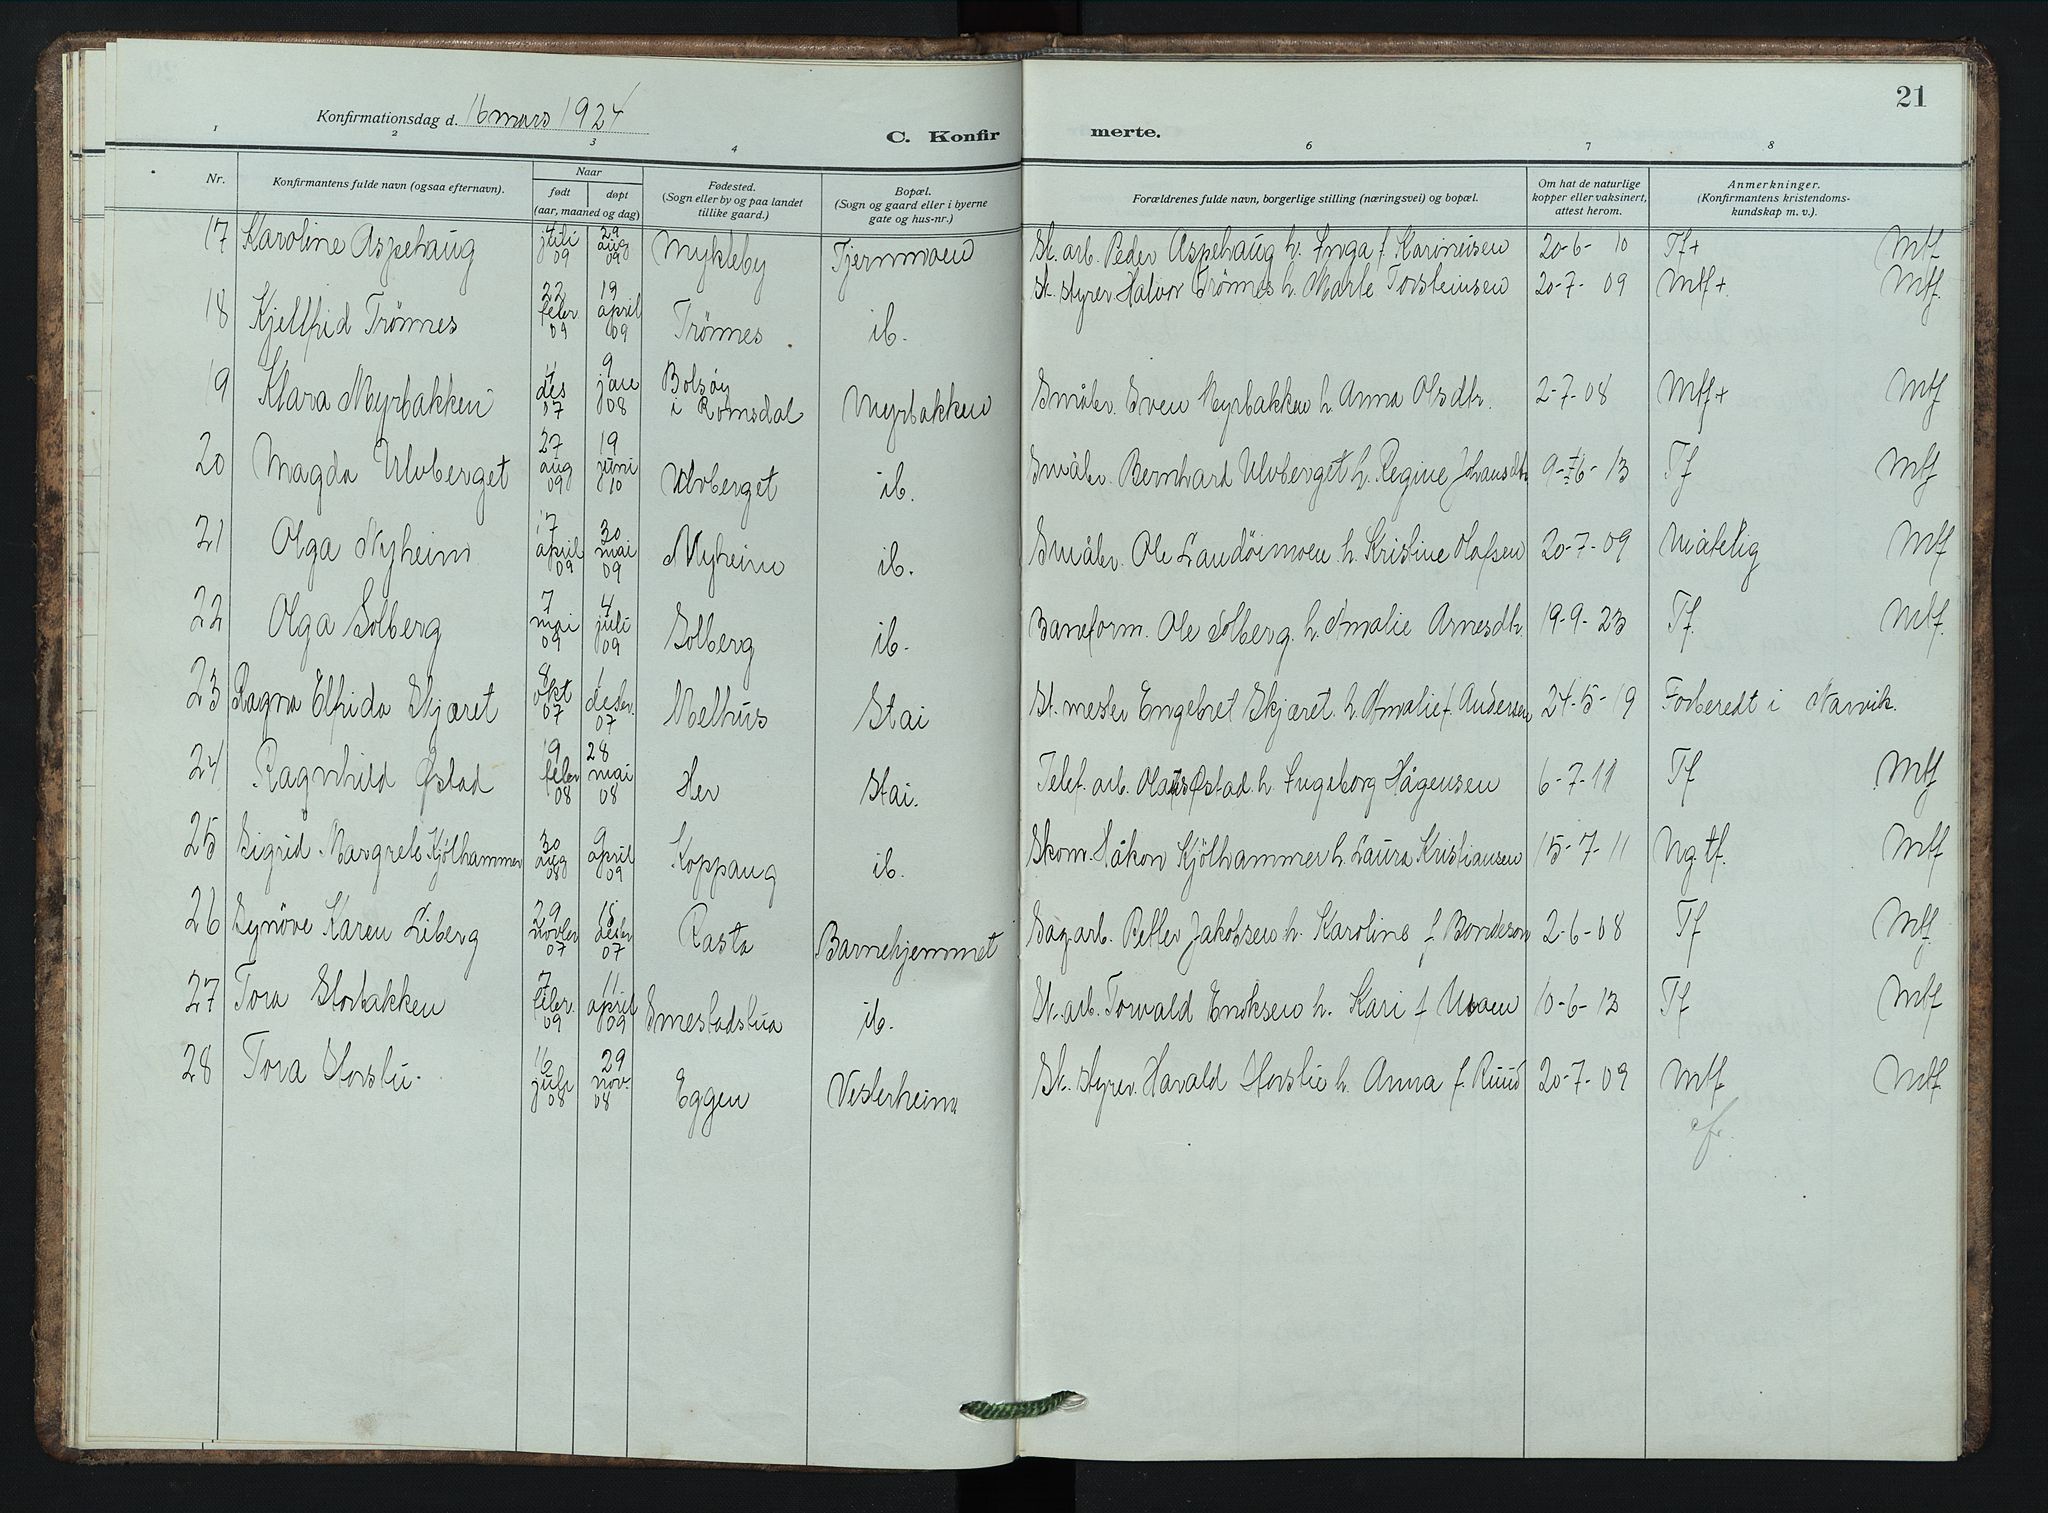 21
Konfirmationsdag d. 16 mars 1924
C. Konfirmerte.
1 2 3 4 6 7 8
Nr. Konfirmantens fulde navn (ogsaa efternavn). Naar født døpt (aar, maaned og dag) Fødested. (Sogn eller by og paa landet tillike gaard.) Bopæl. (Sogn og gaard eller i byerne gate og hus-nr.) Forældrenes fulde navn, borgerlige stilling (næringsvei) og bopæl. Om hat de naturlige kopper eller vaksinert, attest herom. Anmerkninger. (Konfirmantens kristendomskundskap m. v.).
17 Karoline Aspehaug juli 09 29 aug 09 Mykleby Tjernmoen Sk. arb. Peder Aspehaug h. Inga f Karoneisen 20-6-10 Tf+ Mtf
18 Kjellfrid Trønnes 22 febr 09 19 april 09 Trønnes ib. St. styrer Halvor Trønnes h. Marte Torsteinsen 20-7-09 Mtf+ Mtf.
19 Klara Myrbakken des 07 9 jan 08 Bolsøy i Romsdal Myrbakken Småbr. Even Myrbakken h. Anna Olsdtr. 2-7-08 Mtf+ Mtf
20 Magda Ulvberget 27 aug 09 19 juni 10 Ulvberget ib. Småbr. Bernhard Ulvberget h. Regine Johansdtr 9-6-13 Tf Mtf
21 Olga Nyheim 17 april 09 30 mai 09 Nyheim ib. Småbr. Ole Landøimoen h. Kristine Olafsen 20-7-09 Måtelig Mtf
22 Olga Solberg 7 mai 09 4 juli 09 Solberg ib. Baneform. Ole Solberg h. Amalie Arnesdtr. 19-9-23 Tf. Mtf.
23 Ragna Elfrida Skjæret 8 okt 07 1 desbr. 07 Melhus Stai St. mester Engebret Skjæret h. Amalie f. Andersen 24-5-19 Forberedt i Narvik.
24 Ragnhild Østad 19 febr 08 28 mai 08 Her Stai. Telef. arb. Olaus Østad h. Ingeborg Hågensen 6-7-11 Tf Mtf
25 Sigrid Margrete Kjølhammer 30 aug 08 9 april 09 Koppang ib. Skom. Håkon Kjølhammer h. Laura Kristiansen 15-7-11 Ng tf. Mtf
26 Synøve Karen Liberg 29 novbr 07 15 desbr 07 Rasta Barnehjemmet Sagarb. Petter Jakobsen h. Karoline f Bondeson 2-6-08 Tf Mtf
27 Tora Storbakken 7 febr. 09 11 april 09 Smestadstua ib. Sk. arb. Torvald Eriksen h. Kari f Moen 10-6-13 Tf Mtf
28 Tora Storsli. 16 juli 08 29 nov. 08 Eggen Vesterheim Sk. styrer Harald Storslie h. Anna f. Ruud 20-7-09 Mtf Mtf
cfr.